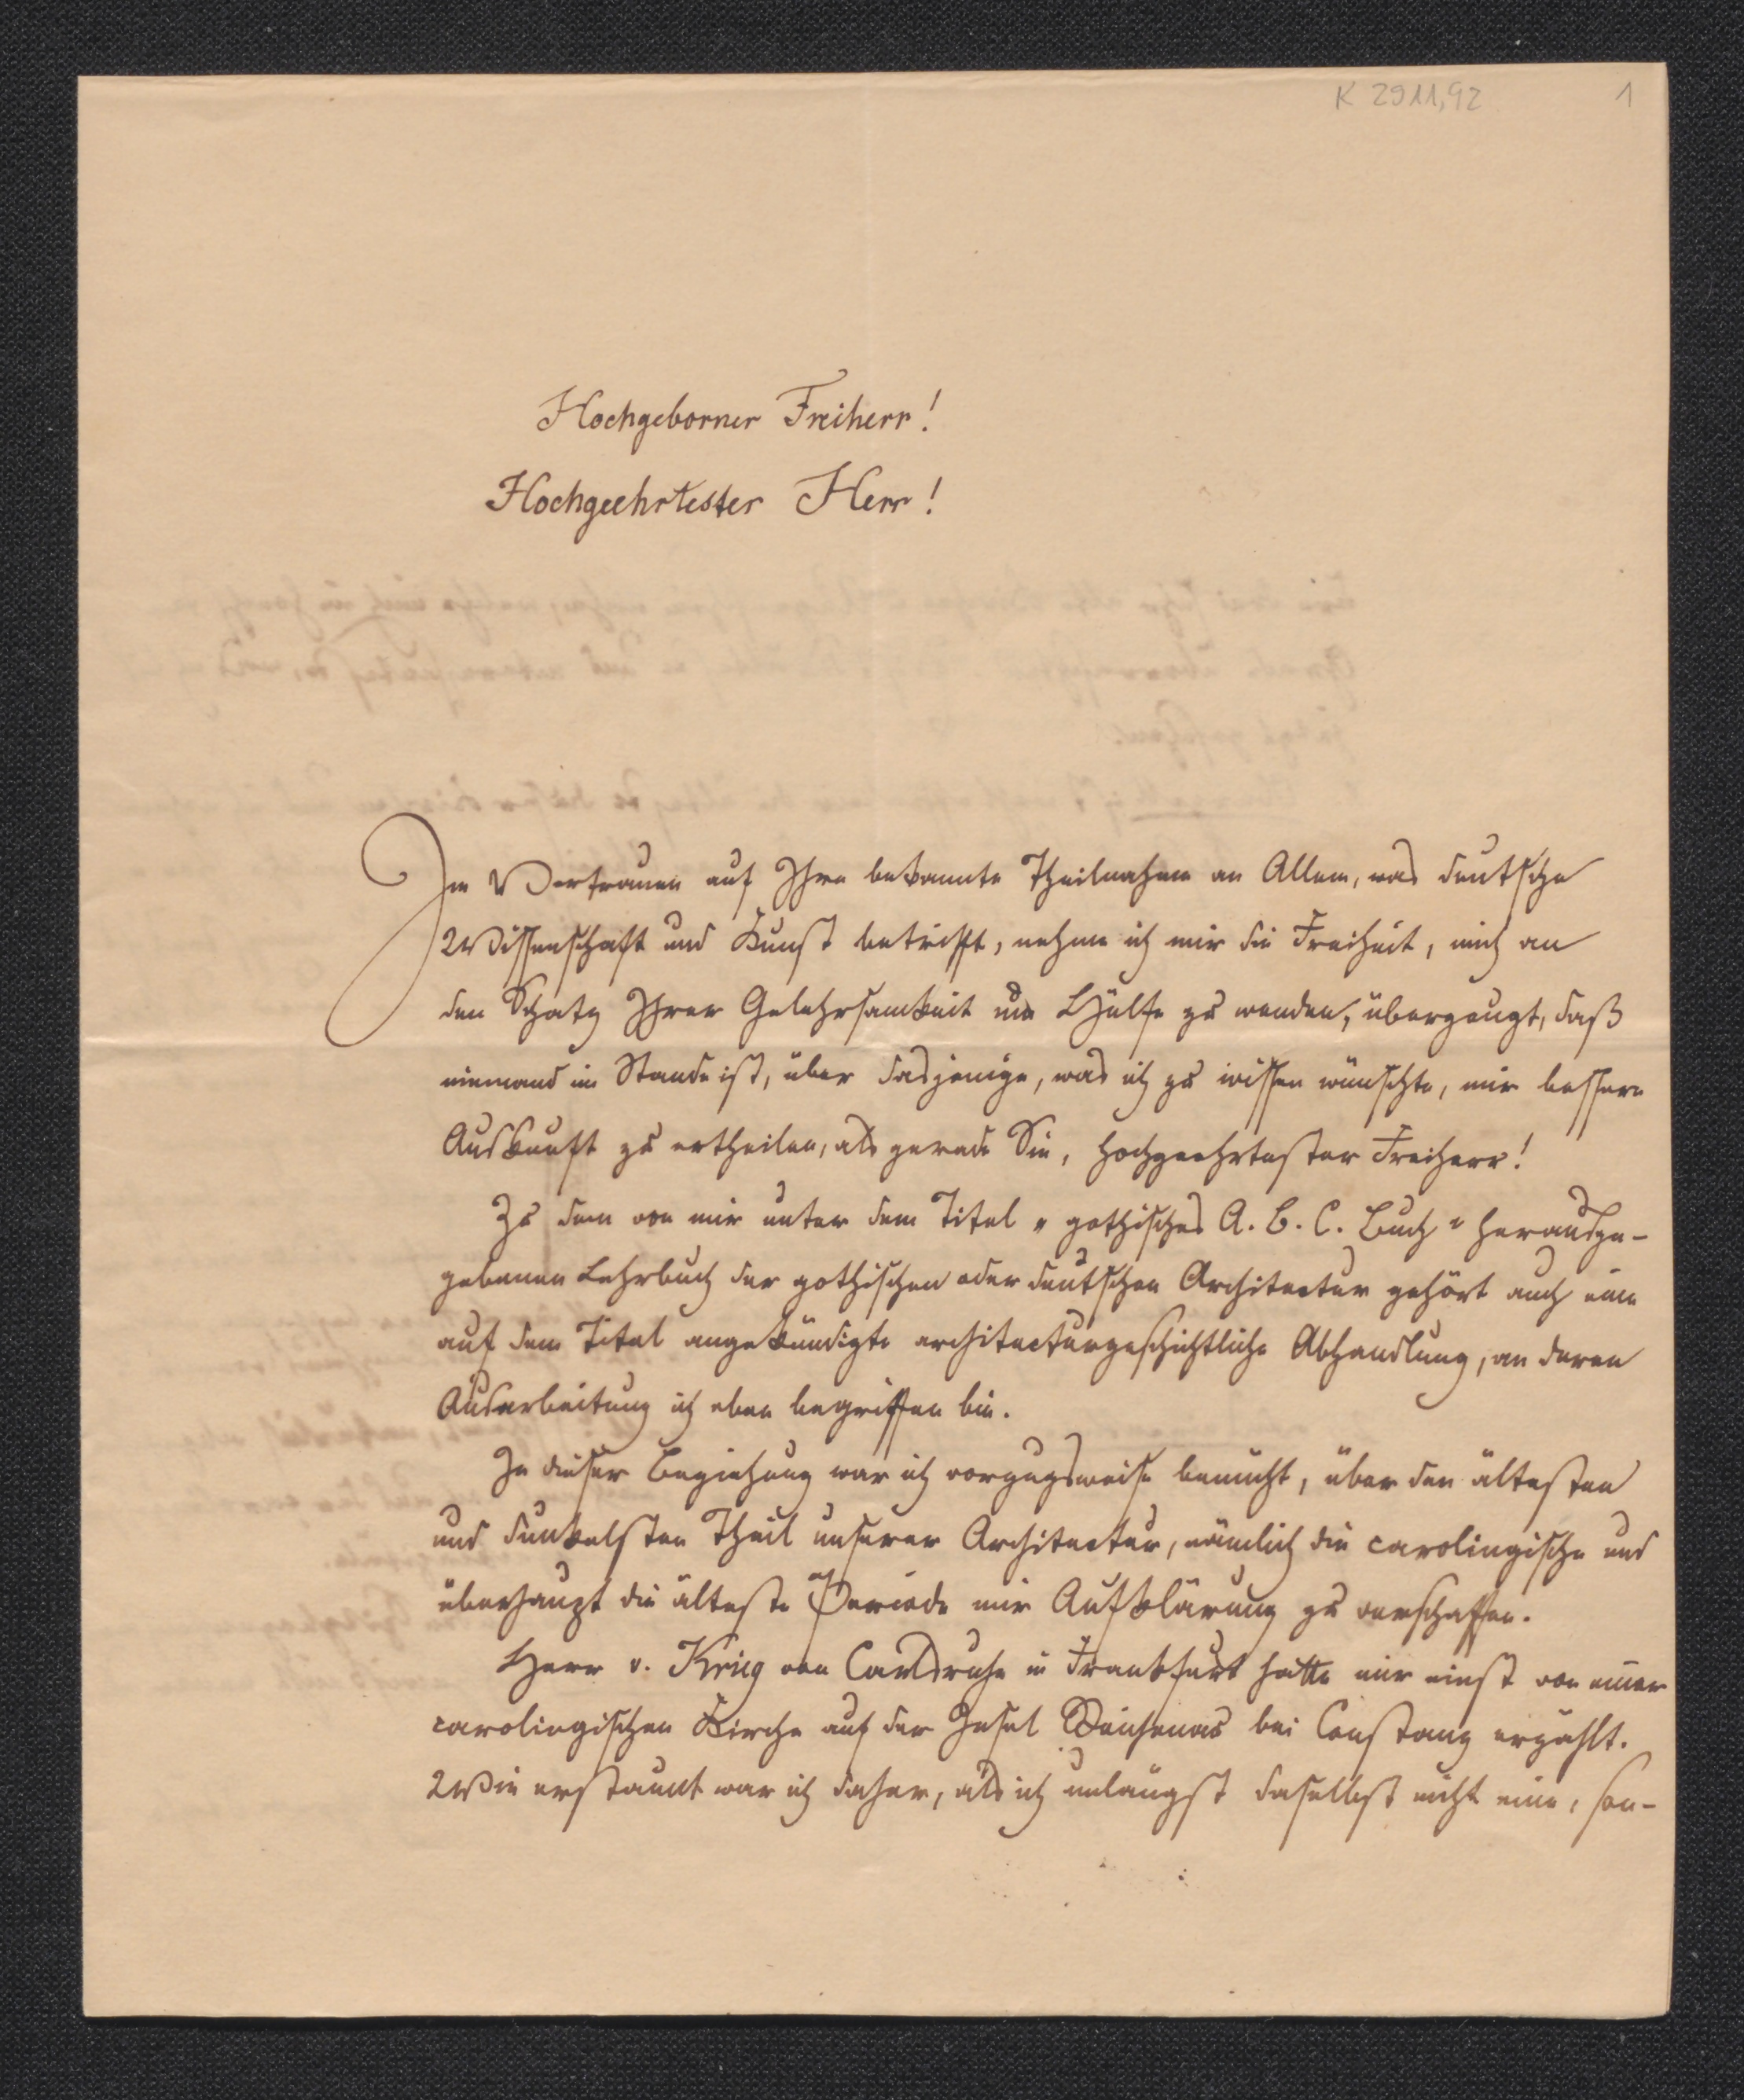 K 2911,92 1
Hochgeborner Freiherr!
Hochgeehrtester Herr!
Im Vertrauen auf Ihre bekannte Theilnahme an Allem, was deutsche
Wissenschaft und Kunst betrifft, nehme ich mir die Freiheit, mich an
den Schatz Ihrer Gelehrsamkeit um Hülfe zu wenden, überzeugt, daß
niemand im Stande ist, über dasjenige, was ich zu wissen wünschte, mir bessere
Auskunft zu ertheilen, als gerade Sie, hochgeehrtester Freiherr!
Zu dem von mir unter dem Titel „gothisches A. B. C. Buch" herausge-
gebenen Lehrbuch der gothischen oder deutschen Architectur gehört auch eine
auf dem Titel angekündigte architecturgeschichtliche Abhandlung, an deren
Ausarbeitung ich eben begriffen bin.
In dieser Beziehung war ich vorzugsweise bemüht, über den ältesten
und dunkelsten Theil unserer Architectur, nämlich die carolingische und
überhaupt die älteste Periode mir Aufklärung zu verschaffen.
Herr v. Krieg von Carlsruhe in Frankfurt hatte mir einst von einer
carolingischen Kirche auf der Insel Reichenau bei Constanz erzählt.
Wie erstaunt war ich daher, als ich unlängst daselbst nicht eine, son-